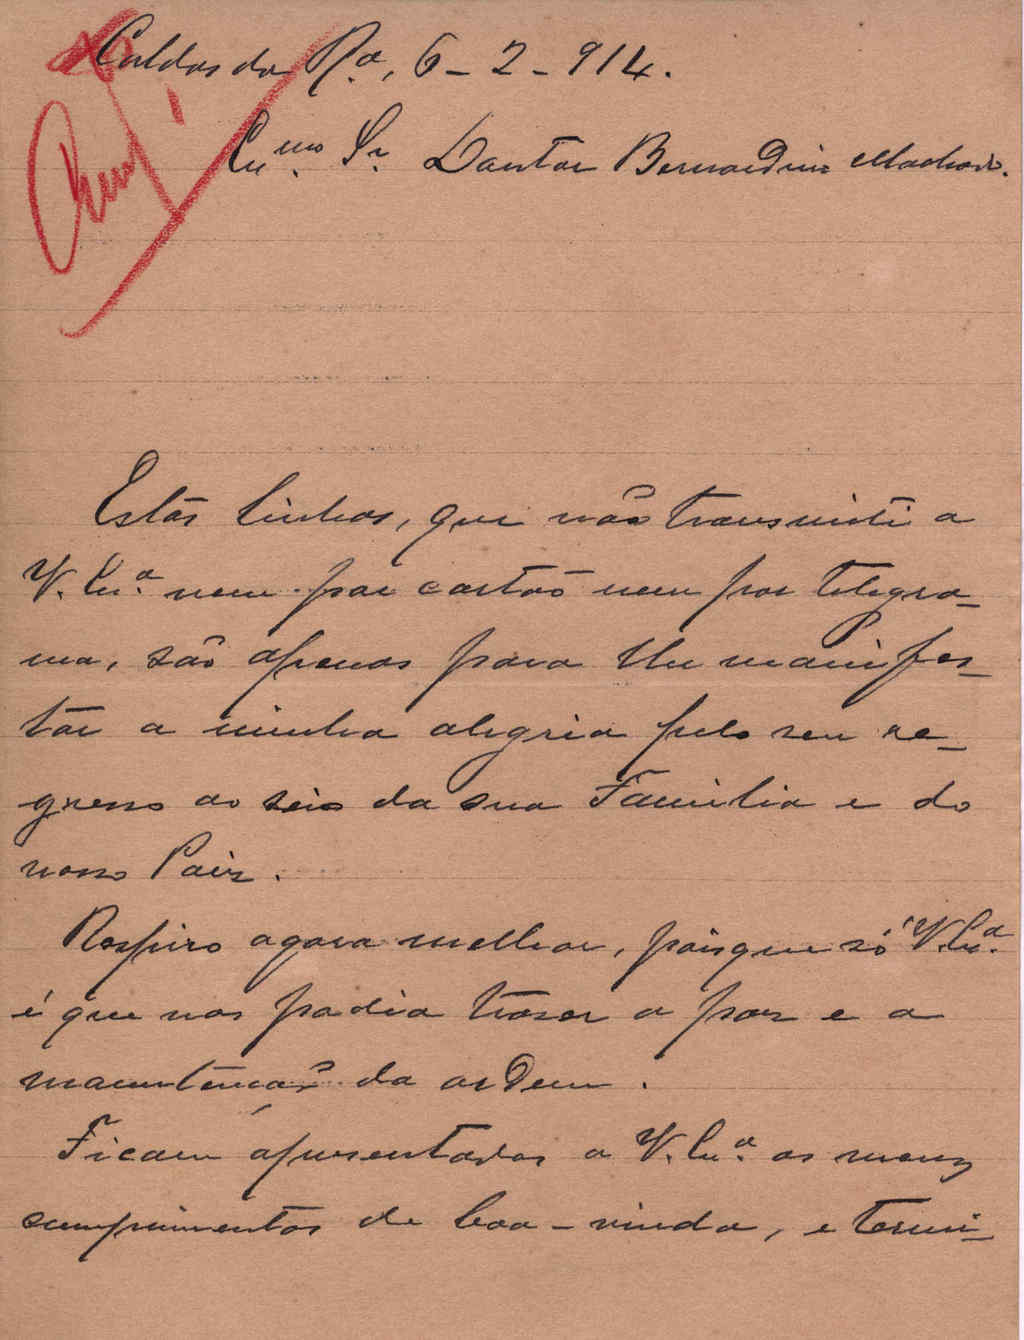 Caldas da Rª, 6-2-914.
Exmo. Sr. Doutor Bernardino Machado.
Estas linhas, que não transmiti a
V. Exª. nem por cartão nem por telegra-
ma, são apenas para lhe manifes-
tar a minha alegria pelo seu re-
gresso ao seio da sua Familia e do
nosso Paiz.
Respiro agora melhor, porque só V. Exª.
é que nos podia trazer a paz e a
manutenção da ordem.
Ficam apresentados a V. Exª. os meus
cumprimentos de boa-vinda, e termi-